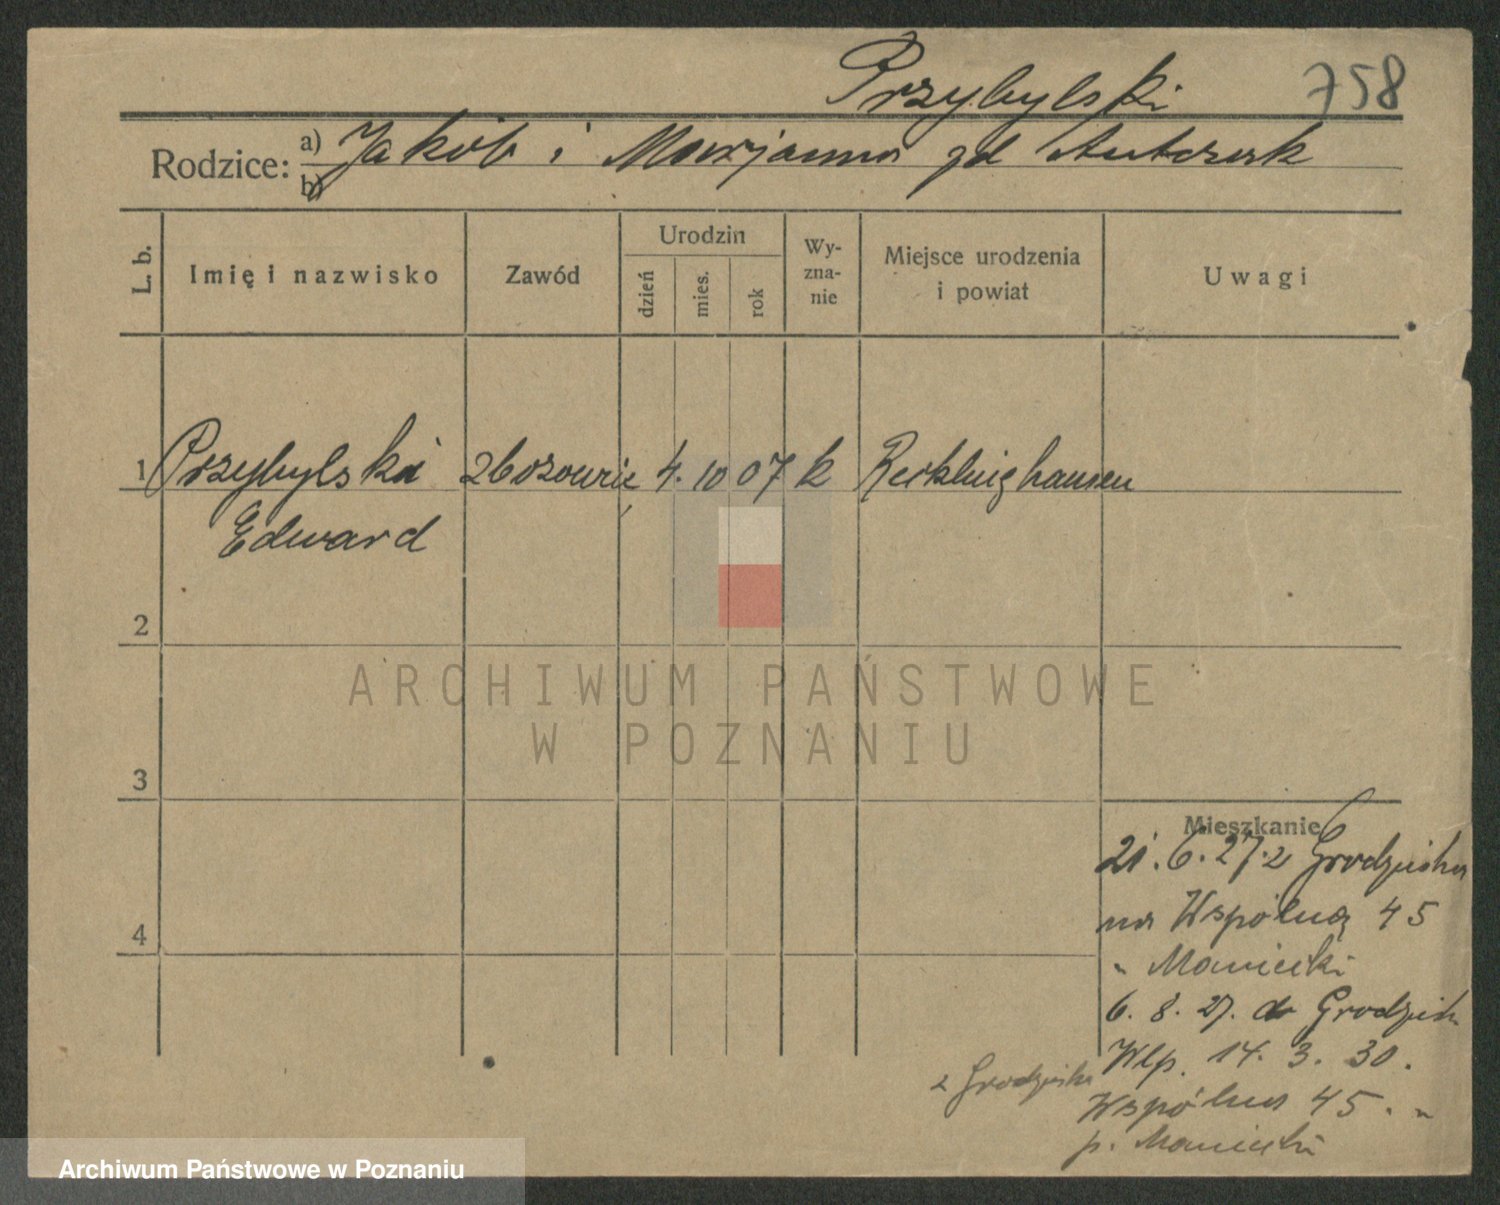 Przybylski 758
Rodzice: a) Jakób i Marjanna zd Antczak
b)
L. b. Imię i nazwisko Zawód Urodzin dzień mies. rok Wyznanie Miejsce urodzenia i powiat Uwagi
1 Przybylski zbożowiec 4. 10 07 k Recklinghausen
Edward
2
3
4
Mieszkanie
21. 6. 27. z Grodziska
na Wspólną 45
" Maniecki
6. 8. 27. do Grodzisk
Wlp. 14. 3. 30.
z Grodziska
Wspólna 45. "
p. Maniecki
ARCHIWUM PAŃSTWOWE
W POZNANIU
Archiwum Państwowe w Poznaniu